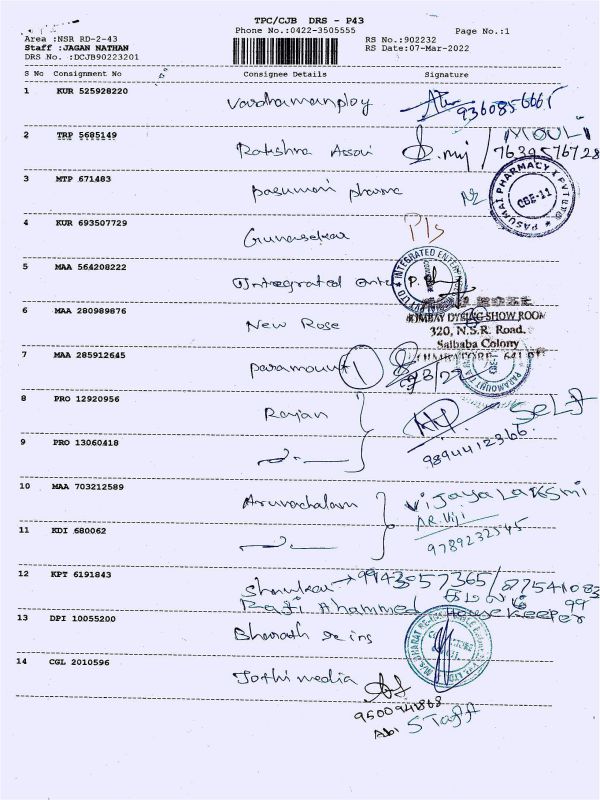 TPC/CJB DRS - P43
Phone No.:0422-3505555
Page No.:1
Area :NSR RD-2-43
RS No.:902232
Staff :JAGAN NATHAN
RS Date:07-Mar-2022
DRS No. :DCJB90223201
S No Consignment No Consignee Details Signature
1 KUR 525928220 Vardhamanploy 9360856665
2 TRP 5685149 Rakshna Assoi MOULI
7639576728
3 MTP 671483 pasumai pharma
PASUMAI PHARMACY PVT LTD CBE-11
4 KUR 693507729 Gunasekar Pls
5 MAA 564208222 Integrated ente
INTEGRATED ENTER
6 MAA 280989876 New Rose
BOMBAY DYEING SHOW ROOM
320, N.S.R. Road,
Saibaba Colony
7 MAA 285912645 paramount 1
PARAMOUNT
8 PRO 12920956 Rajan SELF
9894412366
9 PRO 13060418
10 MAA 703212589 Arunachalam VIJAYALAKSMI
AR.Viji
11 KDI 680062 9789232545
12 KPT 6191843 Shankar 9943057365/
Rafi Ahammed House Keeper 99
13 DPI 10055200 Bharath re ins
14 CGL 2010596 Jothi media
9500941868
Abi Staff